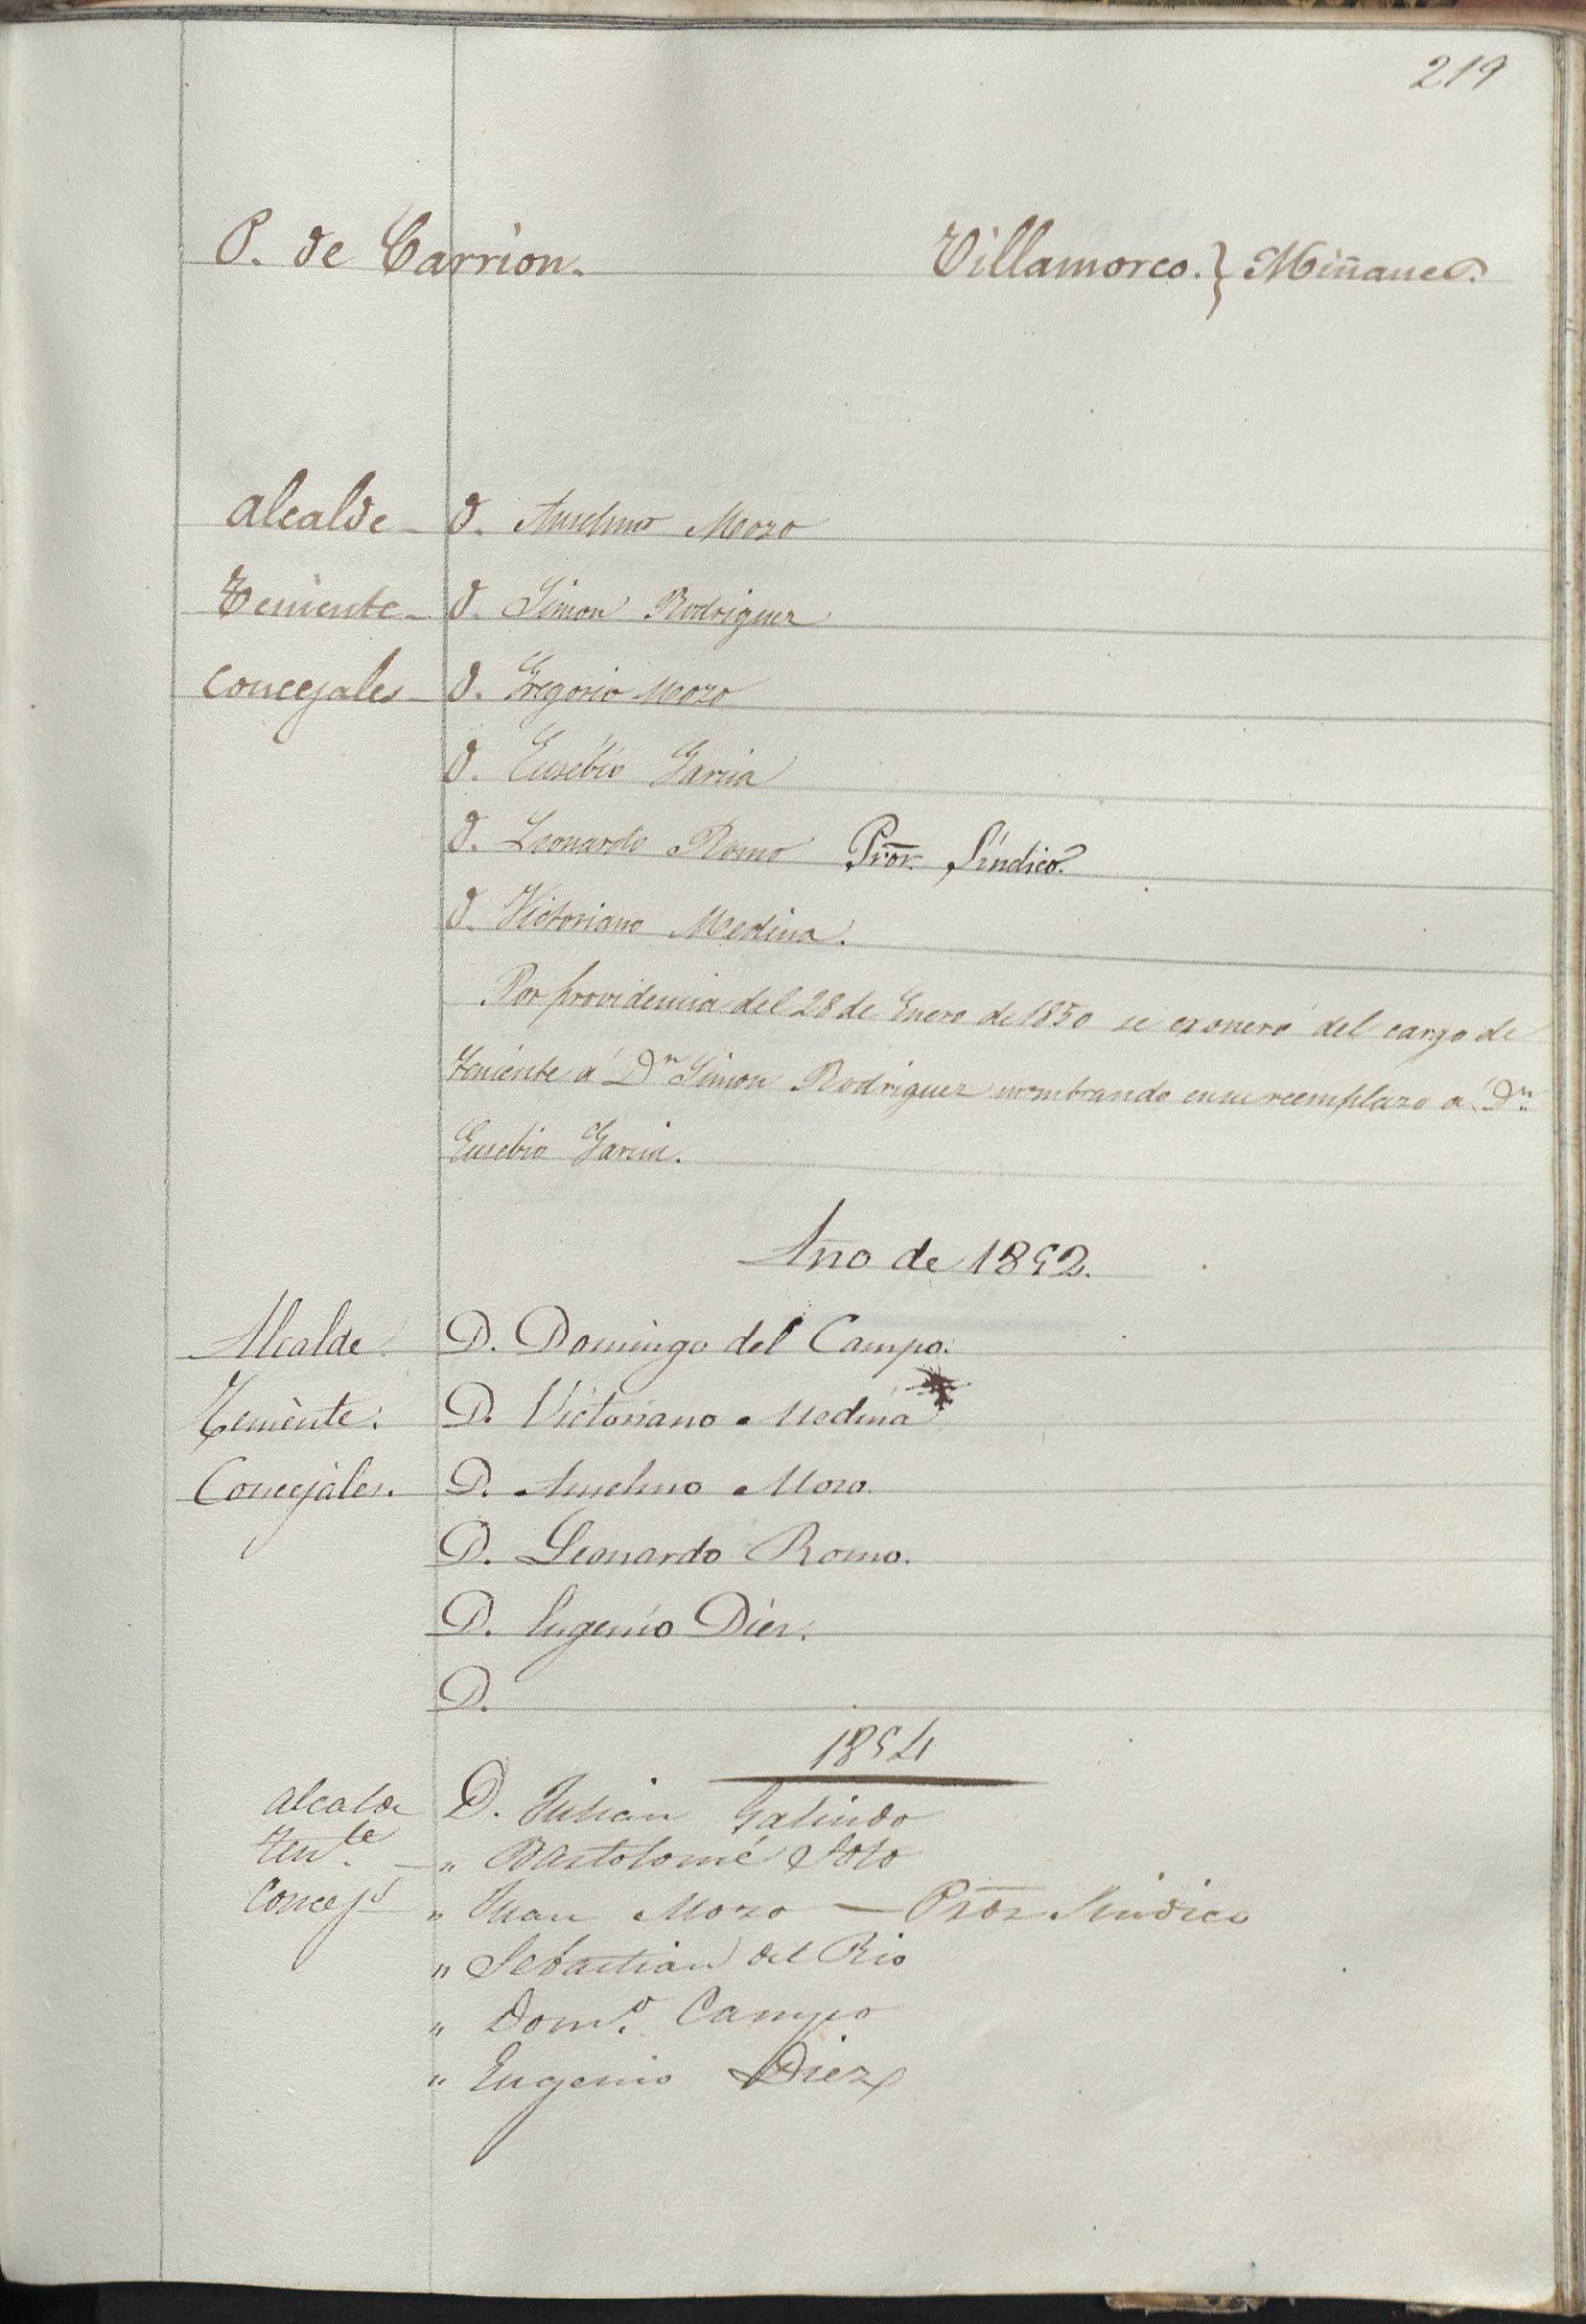 219
P. de Carrion. Villamorco. } Miñanes.
Alcalde - D. Anselmo Mozo
Teniente - D. Simon Rodriguez
Concejales - D. Gregorio Mozo
D. Eusebio Garcia
D. Leonardo Romo Pror. Síndico.
D. Victoriano Medina.
Por providencia del 28 de Enero de 1850 se exoneró del cargo de
teniente á Dn Simon Rodriguez nombrando en su reemplazo a Dn
Eusebio Garcia.
Año de 1852.
Alcalde D. Domingo del Campo.
Teniente. D. Victoriano Medina
Concejales. D. Anselmo Mozo.
D. Leonardo Romo.
D. Eugenio Diez.
D.
1854
Alcalde D. Julian Galindo
Tente. - " Bartolomé Soto
Concejs " Juan Mozo — Pror Sindico
" Sebastian del Rio
" Domo. Campo
" Eugenio Diez